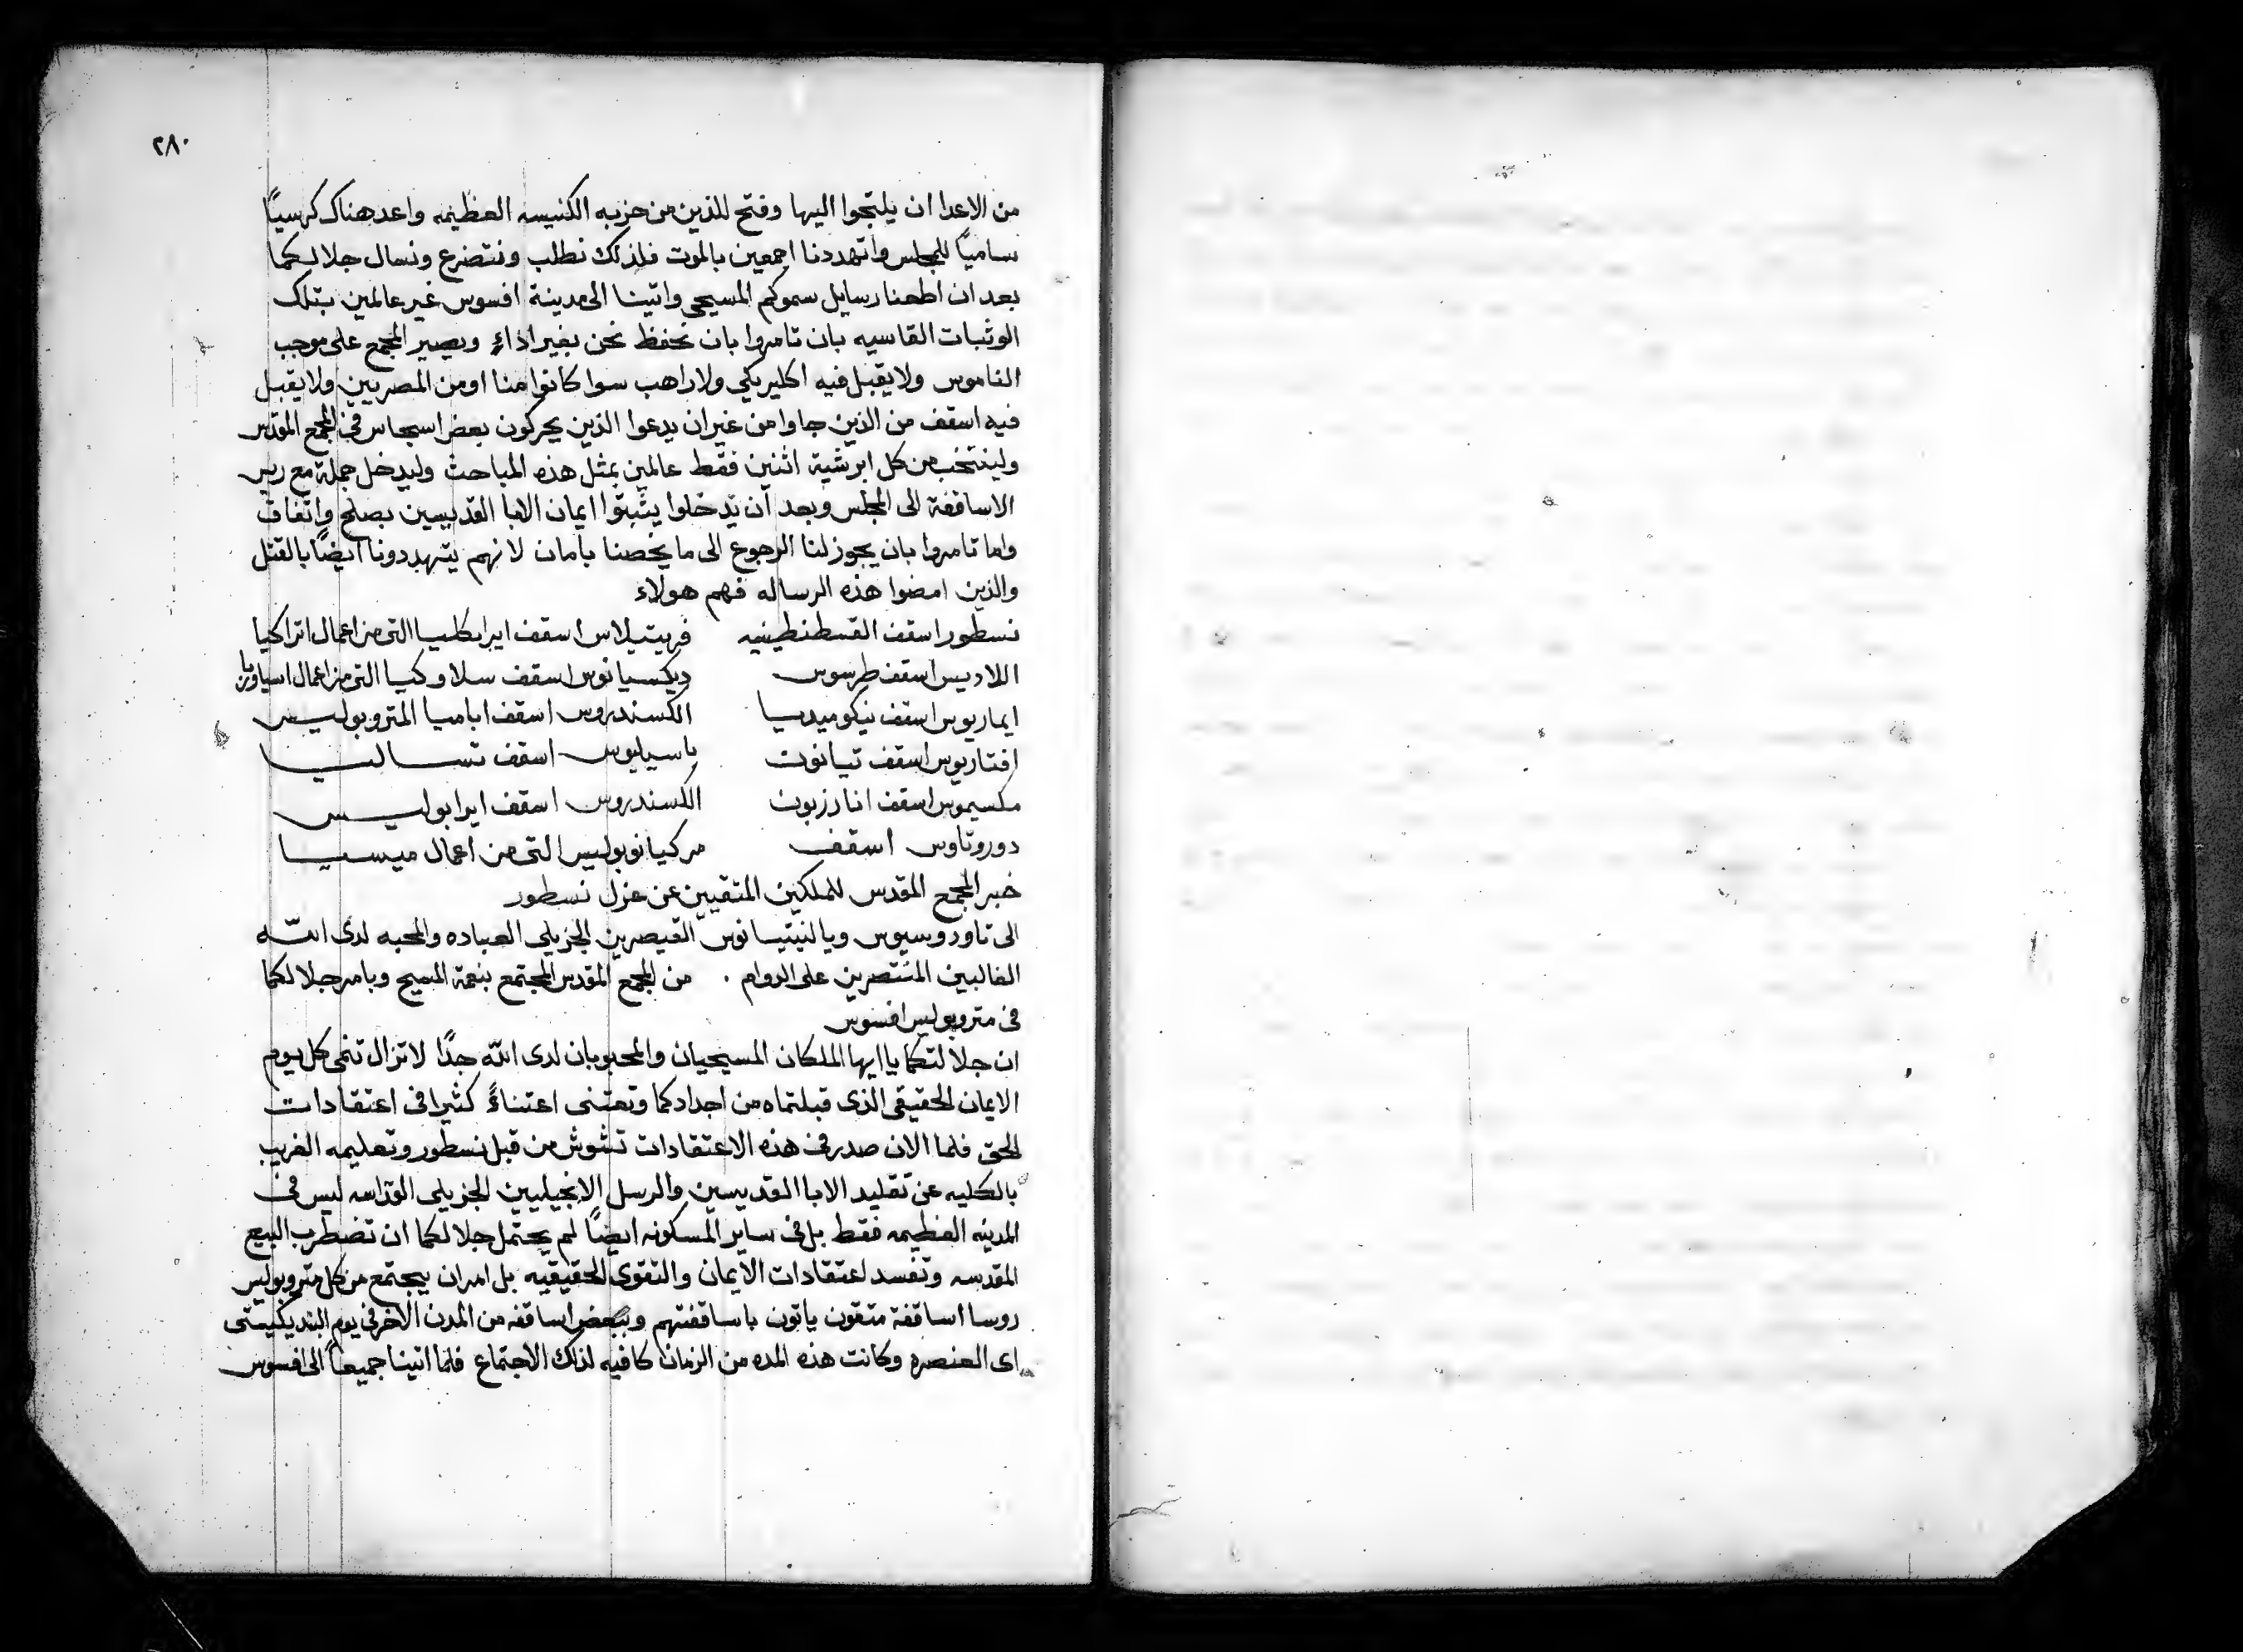 ٢٨٠
من الاعدا ان يلتجوا اليها وفتح للذين من حزبه الكنيسه العظيمه واعد هناك كرسيًا
ساميًا للمجلس واتهددنا اجمعين بالموت فلذلك نطلب ونتضرع ونسال جلالتكما
بعد ان اطعنا رسايل سموكم المسيحي واتينا الى مدينة افسوس غير عالمين بتلك
الوثبات القاسيه بان تامروا بان نحفظ نحن بغير اذاءٍ ويصير المجمع على موجب
الناموس ولا يقبل فيه اكليريكي ولا راهب سوا كانوا منا او من المصريين ولا يقبل
فيه اسقف من الذين جاوا من غير ان يدعوا الذين يحركون بعض اسجاس في المجمع المقدس
ولينتخب من كل ابرشية اثنين فقط عالمين بمثل هذه المباحث وليدخل جملة مع ريس
الاساقفة الى المجلس وبعد ان يدخلوا يثبتوا ايمان الابا القديسين بصلح واتفاق
واما تامروا بان يجوز لنا الرجوع الى ما يخصنا بامان لانهم يتهددونا ايضًا بالقتل
والذين امضوا هذه الرساله فهم هولاء
نسطور اسقف القسطنطينيه فريتيلاس اسقف ايراكليا التي من اعمال اتراكيا
اللاديس اسقف طرسوس ديكسيانوس اسقف سلاوكيا التي من اعمال
ايماريوس اسقف نيكوميديا الكسندروس اسقف اباميا المتروبوليس
افتاريوس اسقف تيانون باسيليوس اسقف تساليا
مكسيموس اسقف انارزبون الكسندروس اسقف ايرابوليس
دوروتاوس اسقف مركيانوبوليس التي من اعمال ميسيا
خبر المجمع المقدس للملكين المتقيين عن عزل نسطور
الى تاودوسيوس ويالنيتيانوس القيصرين الجزيلي العباده والمحبه لدى الله
الغالبين المنتصرين على الدوام . من المجمع المقدس المجتمع بنعمة المسيح وبامر جلالتكما
في متروبوليس افسوس
ان جلالتكما يا ايها الملكان المسيحيان والمحبوبان لدى الله جدًا لا تزال تنمي كل يوم
الايمان الحقيقي الذى قبلتماه من اجدادكما وتعتنى اعتناءً كثيرا في اعتقادات
الحق فلما الان صدر في هذه الاعتقادات تشوش من قبل نسطور وتعليمه الغريب
بالكليه عن تقليد الابا القديسين والرسل الانجيليين الجزيلى القداسه ليس في
المدينه العظيمه فقط بل في ساير المسكونه ايضًا لم يحتمل جلالتكما ان تضطرب البيع
المقدسه وتفسد اعتقادات الايمان والتقوى الحقيقيه بل امر ان يجتمع من كل متروبوليس
روسا اساقفة متقون ياتون باساقفتهم وببعض اساقفه من المدن الاخر في يوم البنديكيستي
اى العنصره وكانت هذه المده من الزمان كافيه لذلك الاجتماع فلما اتينا جميعًا الى افسوس